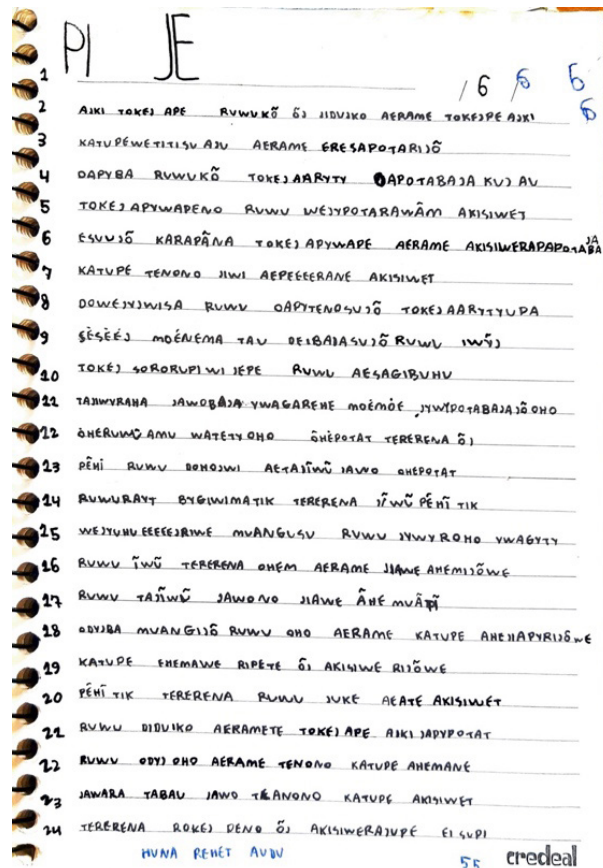 PI JE
/6 6 6
1
2 AJKI TOKEJ APE RUWUKÕ ÕJ JIDUIKO AERAME TOKEJPE AJKI 6
3 KATUPÉWETITISU AJU AERAME ERESAPOTARIJÕ
4 DAPYBA RUWUKÕ TOKEJ AARYTY DAPOTABAJA KUJ AU
5 TOKEJ APYWAPENO RUWU WEJYPOTARAWÂM AKISIWET
6 ESUUJÕ KARAPÃNA TOKEJ APYWAPE AERAME AKISIWERAPAPOTABA JA
7 KATUPE TENONO JIWI AEPEEEERANE AKISIWET
8 DOWEJYJWISA RUWU OAPYTENOSUJÕ TOKEJ AARYTYUPA
9 SÈSÈÉJ MOÉNEMA TAU DEIBAJASUJÕ RUWU IWŨJ
10 TOKEJ SORORUPI WI JEPE RUWU AESAGIBUHU
11 TAJIWYRAHA JAWOBAJA YWAGAREHE MOÉMÓE JYWIPOTABAJAJÕ OHO
12 ÕHERUWŨ AMU WATETY OHO ÕHÉPOTAT TERERENA ÕJ
13 PĒHĨ RUWU DOHOJWI AETAJĨWŨ JAWO OHEPOTAT
14 RUWURAYT BYGIWIMATIK TERERENA JĨWŨ PĒHĨ TIK
15 WEJYUHUEEEEEJRIWE MUANGUSU RUWU JYWYROHO YWAGYTY
16 RUWU ĨWŨ TERERENA OHEM AERAME JIAWE AHEMIJÕWE
17 RUWU TAJĨWŨ JAWONO JIAWE ÃHE MUÃPĨ
18 ODYJBA MUANGIJÕ RUWU OHO AERAME KATUPE AHEJIAPYRIJÕWE
19 KATUPE EHEMAWE RIPETE ÕJ AKISIWE RIJÕWE
20 PĒHĨ TIK TERERENA RUWU JUKE AEATE AKISIWET
21 RUWU DIDUIKO AERAMETE TOKEJ APE AJKI JAPYPOTAT
22 RUWU ODYJ OHO AERAME TENONO KATUPE AHEMANE
23 JAWARA TABAU JAWO TEANONO KATUPE AKISIWET
24 TERERENA ROKEJ DENO ÕJ AKISIWERAJUPÉ EI SUPI
HUNA REHET AUDU 55 credeal